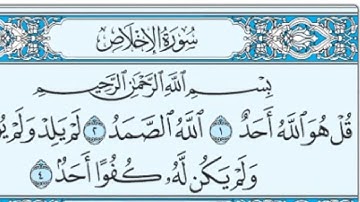 سُورَةُ الإِخْلَاصِ
بِسْمِ اللَّهِ الرَّحْمَٰنِ الرَّحِيمِ
قُلْ هُوَ اللَّهُ أَحَدٌ ١ اللَّهُ الصَّمَدُ ٢ لَمْ يَلِدْ وَلَمْ
وَلَمْ يَكُن لَّهُۥ كُفُوًا أَحَدٌ ٤